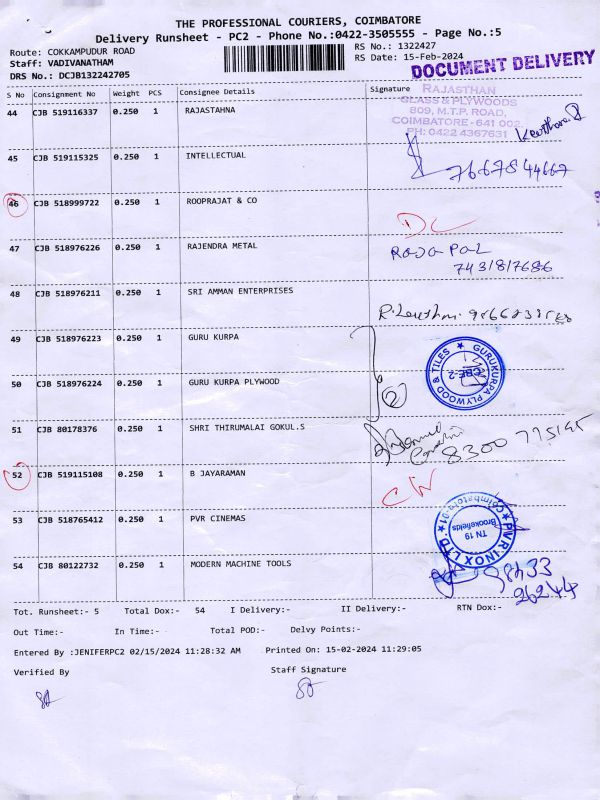 THE PROFESSIONAL COURIERS, COIMBATORE
Delivery Runsheet - PC2 - Phone No.:0422-3505555 - Page No.:5
Route: COKKAMPUDUR ROAD
RS No.: 1322427
Staff: VADIVANATHAM
RS Date: 15-Feb-2024
DOCUMENT DELIVERY
DRS No.: DCJB132242705
S No Consignment No Weight PCS Consignee Details Signature
RAJASTHAN
GLASS & PLYWOODS
809, M.T.P. ROAD,
COIMBATORE - 641 002
PH: 0422 4367631
44 CJB 519116337 0.250 1 RAJASTAHNA
45 CJB 519115325 0.250 1 INTELLECTUAL
7667844667
46 CJB 518999722 0.250 1 ROOPRAJAT & CO
DL
47 CJB 518976226 0.250 1 RAJENDRA METAL
Raja Pal
7431817686
48 CJB 518976211 0.250 1 SRI AMMAN ENTERPRISES
49 CJB 518976223 0.250 1 GURU KURPA
50 CJB 518976224 0.250 1 GURU KURPA PLYWOOD
2
GURUKURPA PLYWOOD & TILES
CBE-2
51 CJB 80178376 0.250 1 SHRI THIRUMALAI GOKUL.S
8300 775185
52 CJB 519115108 0.250 1 B JAYARAMAN
CW
53 CJB 518765412 0.250 1 PVR CINEMAS
PVR INOX LTD.
Coimbatore-01
TN 19
Brookefields
54 CJB 80122732 0.250 1 MODERN MACHINE TOOLS
98433
26244
Tot. Runsheet:- 5 Total Dox:- 54 I Delivery:- II Delivery:- RTN Dox:-
Out Time:- In Time:- Total POD:- Delvy Points:-
Entered By :JENIFERPC2 02/15/2024 11:28:32 AM Printed On: 15-02-2024 11:29:05
Verified By Staff Signature